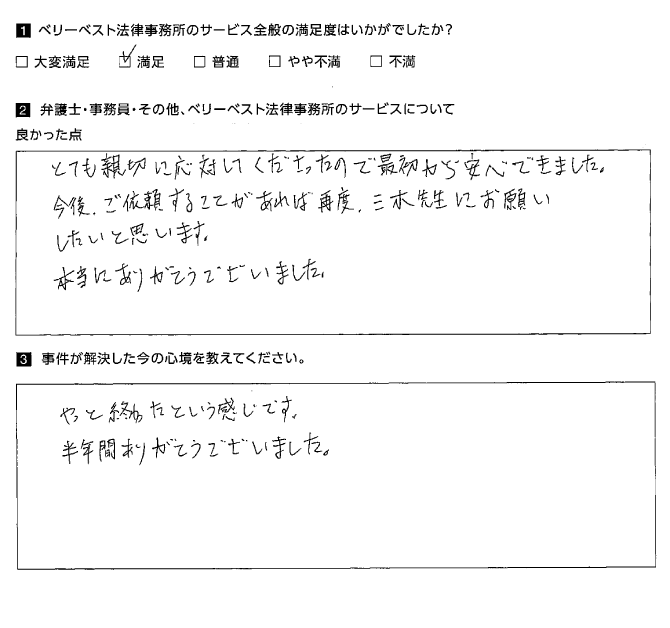 1 ベリーベスト法律事務所のサービス全般の満足度はいかがでしたか?
□ 大変満足 ☑ 満足 □ 普通 □ やや不満 □ 不満
2 弁護士・事務員・その他、ベリーベスト法律事務所のサービスについて
良かった点
とても親切に応対してくださったので最初から安心できました。
今後、ご依頼することがあれば再度、三木先生にお願い
したいと思います。
本当にありがとうございました。
3 事件が解決した今の心境を教えてください。
やっと終わったという感じです。
半年間ありがとうございました。